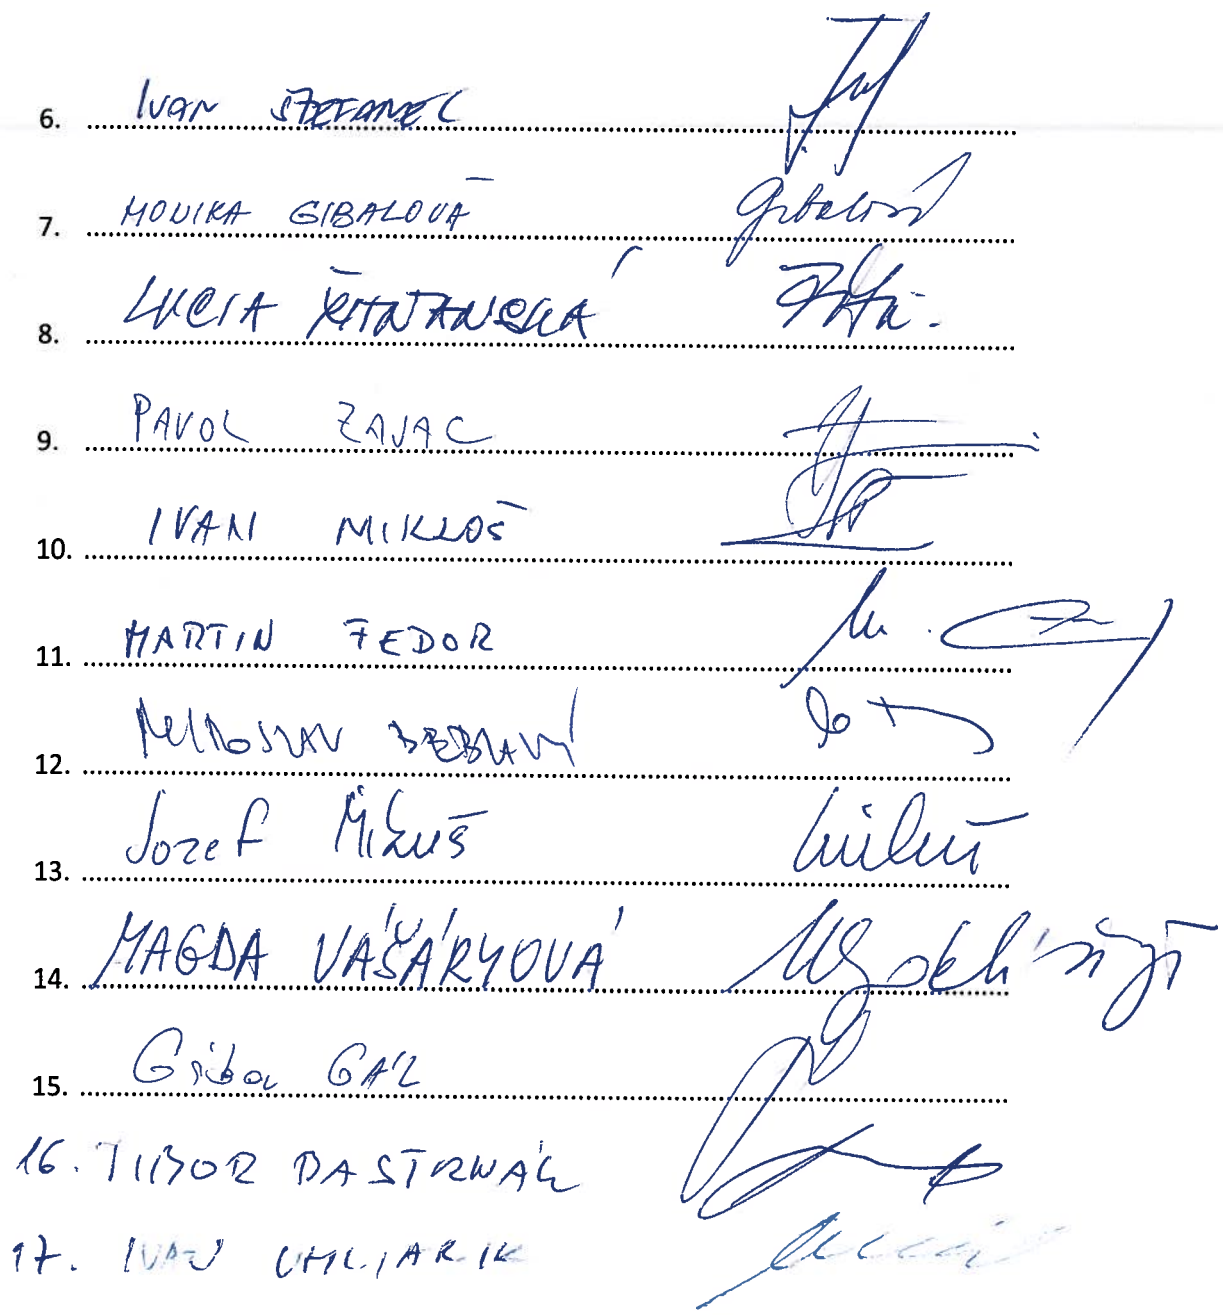 6. IVAN ŠTEFANEC
7. MONIKA GIBALOVÁ
8. LUCIA ŽITŇANSKÁ
9. PAVOL ZAJAC
10. IVAN MIKLOŠ
11. MARTIN FEDOR
12. MIROSLAV BEBLAVÝ
13. Jozef Mikuš
14. MAGDA VÁŠÁRYOVÁ
15. Gábor GÁL
16. TIBOR BASTRNÁK
17. IVAN UHLIARIK